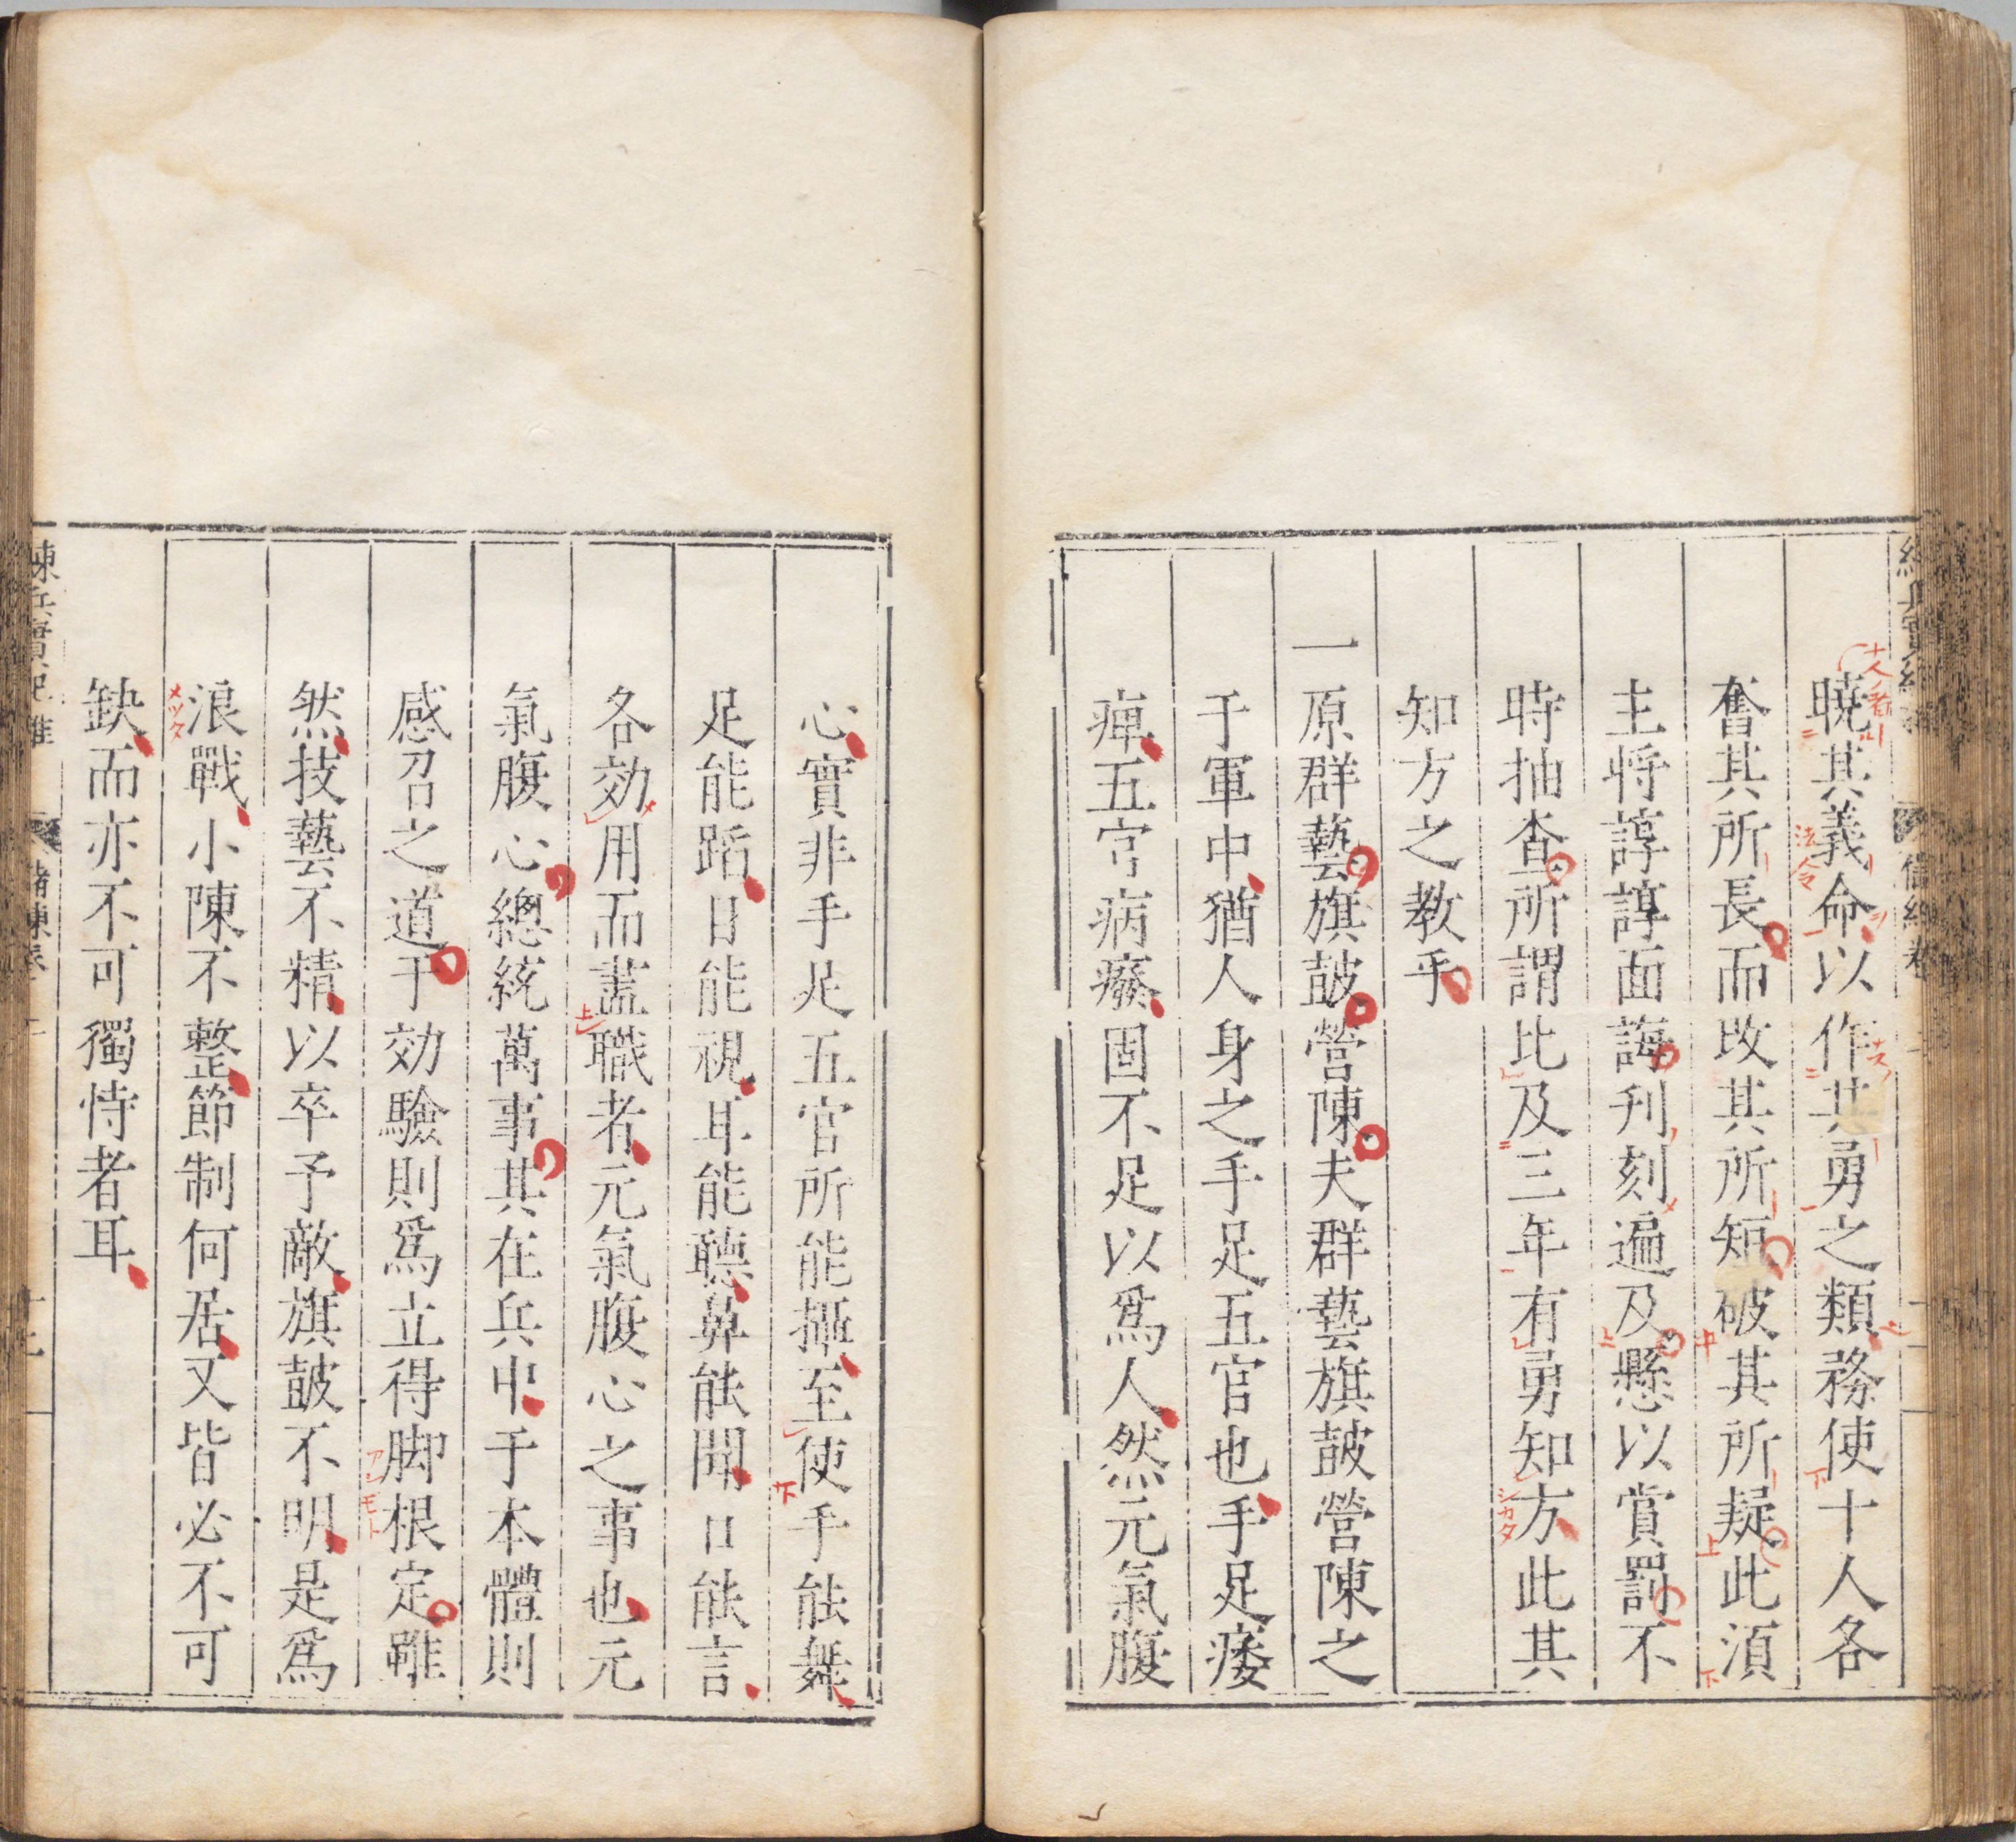 曉其義命以作其勇之類務使十人各
奮其所長而改其所短破其所疑此湏
主将諄諄面誨刋刻遍及懸以賞罰不
時抽查所謂比及三年有勇知方此其
知方之教乎
一原群藝旗皷營陳夫群藝旗皷營陳之
于軍中猶人身之手足五官也手足痿
痺五官病癈固不足以爲人然元氣腹
心實非手足五官所能攝至使手能舞
足能蹈目能視耳能聽鼻能聞口能言
各効用而盡職者元氣腹心之事也元
氣腹心總統萬事其在兵中于本體則
感召之道于効驗則爲立得脚根定雖
然技藝不精以卒予敵旗皷不明是爲
浪戰小陳不整節制何居又皆必不可
缺而亦不可獨恃者耳